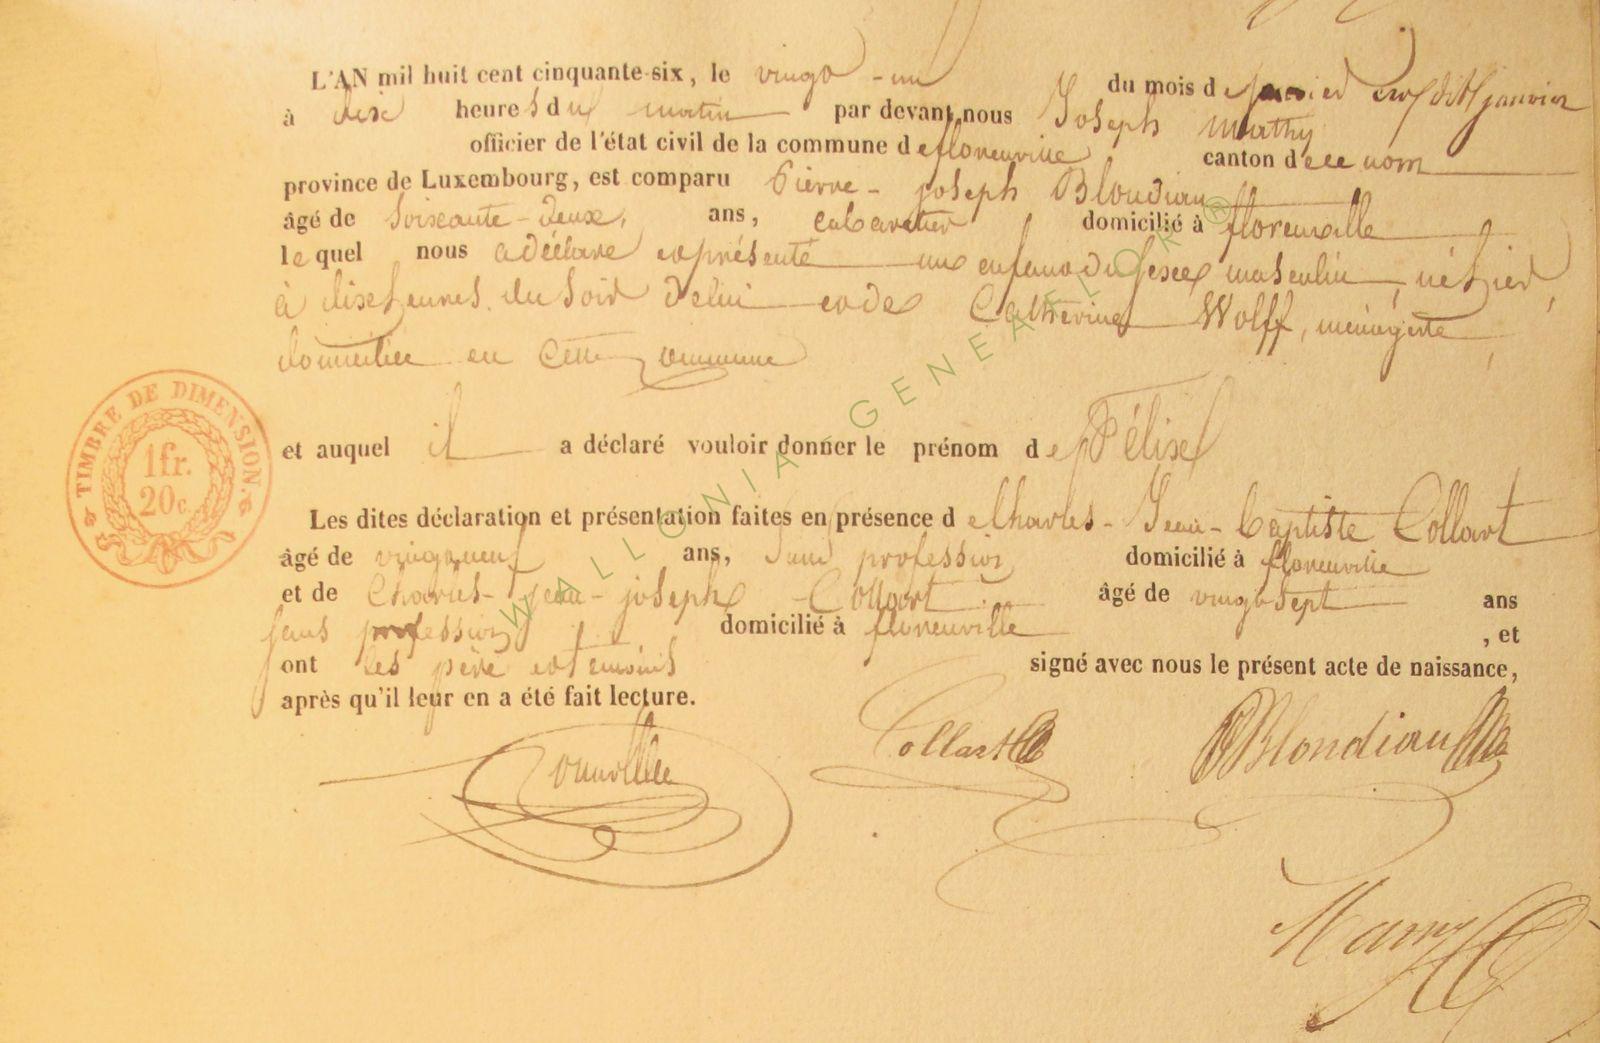 L'AN mil huit cent cinquante-six, le vingt-un du mois de janvier
à dix heures du matin par devant nous Joseph Mathy
officier de l'état civil de la commune de florenville canton de ce nom
province de Luxembourg, est comparu Pierre-joseph Blondiau
âgé de soixante-deux, ans, cabaretier domicilié à florenville
le quel nous a déclaré et présenté un enfant du sexe masculin, né hier,
à dix heures du soir de lui et de Catherine Wolff, ménagère,
domiciliée en cette commune
et auquel il a déclaré vouloir donner le prénom de Félix
TIMBRE DE DIMENSION.
1 fr.
20 c.
Les dites déclaration et présentation faites en présence de Charles-Jean-baptiste Collart
âgé de vingt neuf ans, sans profession domicilié à florenville
et de Charles-jean-joseph Collart âgé de vingt-sept ans
sans profession domicilié à florenville , et
ont les père et témoins signé avec nous le présent acte de naissance,
après qu'il leur en a été fait lecture.
Collart Blondiau
WALLONIA GENEALOR ®